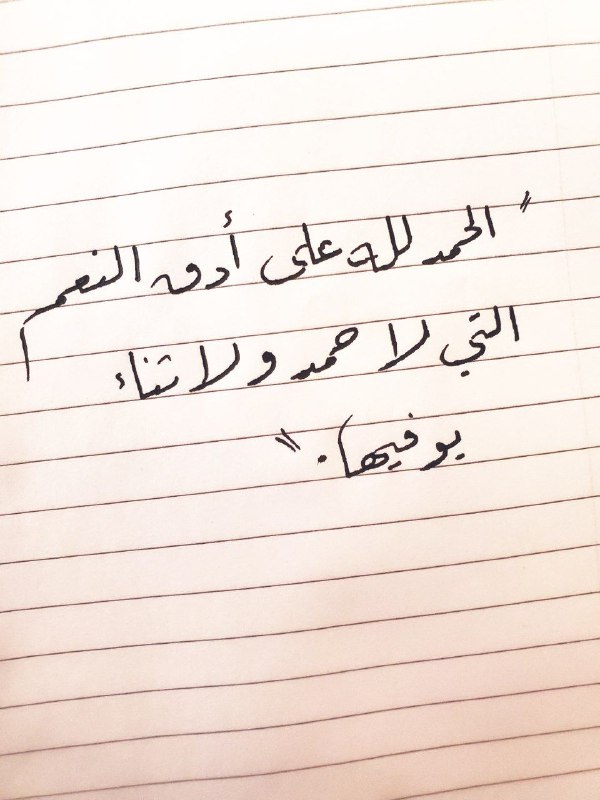 "الحمد لله على أدق النعم
التي لا حمد ولا ثناء
يوفيها."